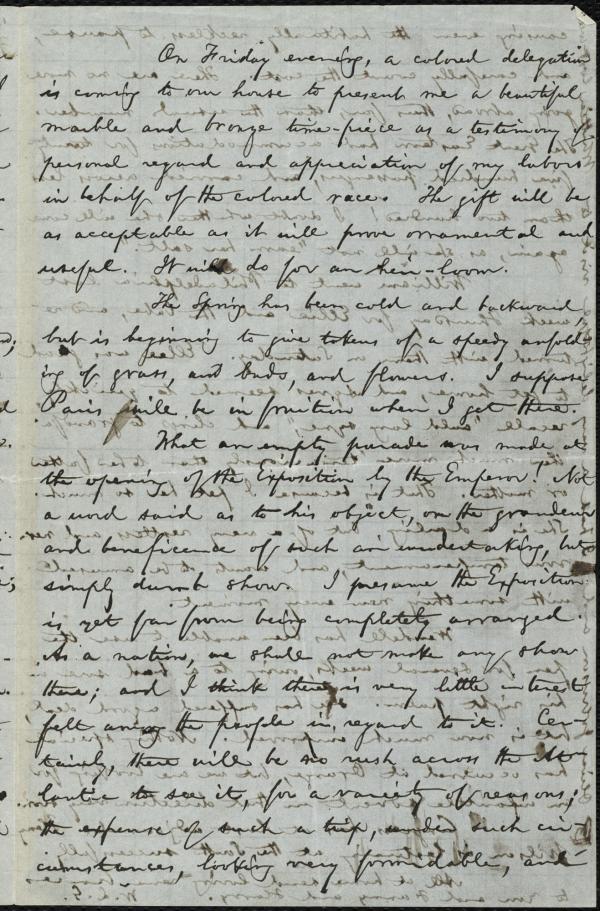 On Friday evening, a colored delegation
is coming to our house to present me a beautiful
marble and bronze time-piece as a testimony of
personal regard and appreciation of my labors
in behalf of the colored race. The gift will be
as acceptable as it will prove ornamental and
useful. It will do for an heir-loom.
The Spring has been cold and backward,
but is beginning to give tokens of a speedy unfold-
ing of grass, and buds, and flowers. I suppose
Paris will be in fruition when I get there.
What an empty parade was made at
the opening of the Exposition by the Emperor! Not
a word said as to his object, or the grandeur
and beneficence of such an undertaking, but
simply dumb show. I presume the Exposition
is yet far from being completely arranged.
As a nation, we shall not make any show
there; and I think there is very little interest
felt among the people in regard to it. Cer-
tainly, there will be no rush across the At-
lantic to see it, for a variety of reasons;
the expense of such a trip, under such cir-
cumstances, looking very formidable, and